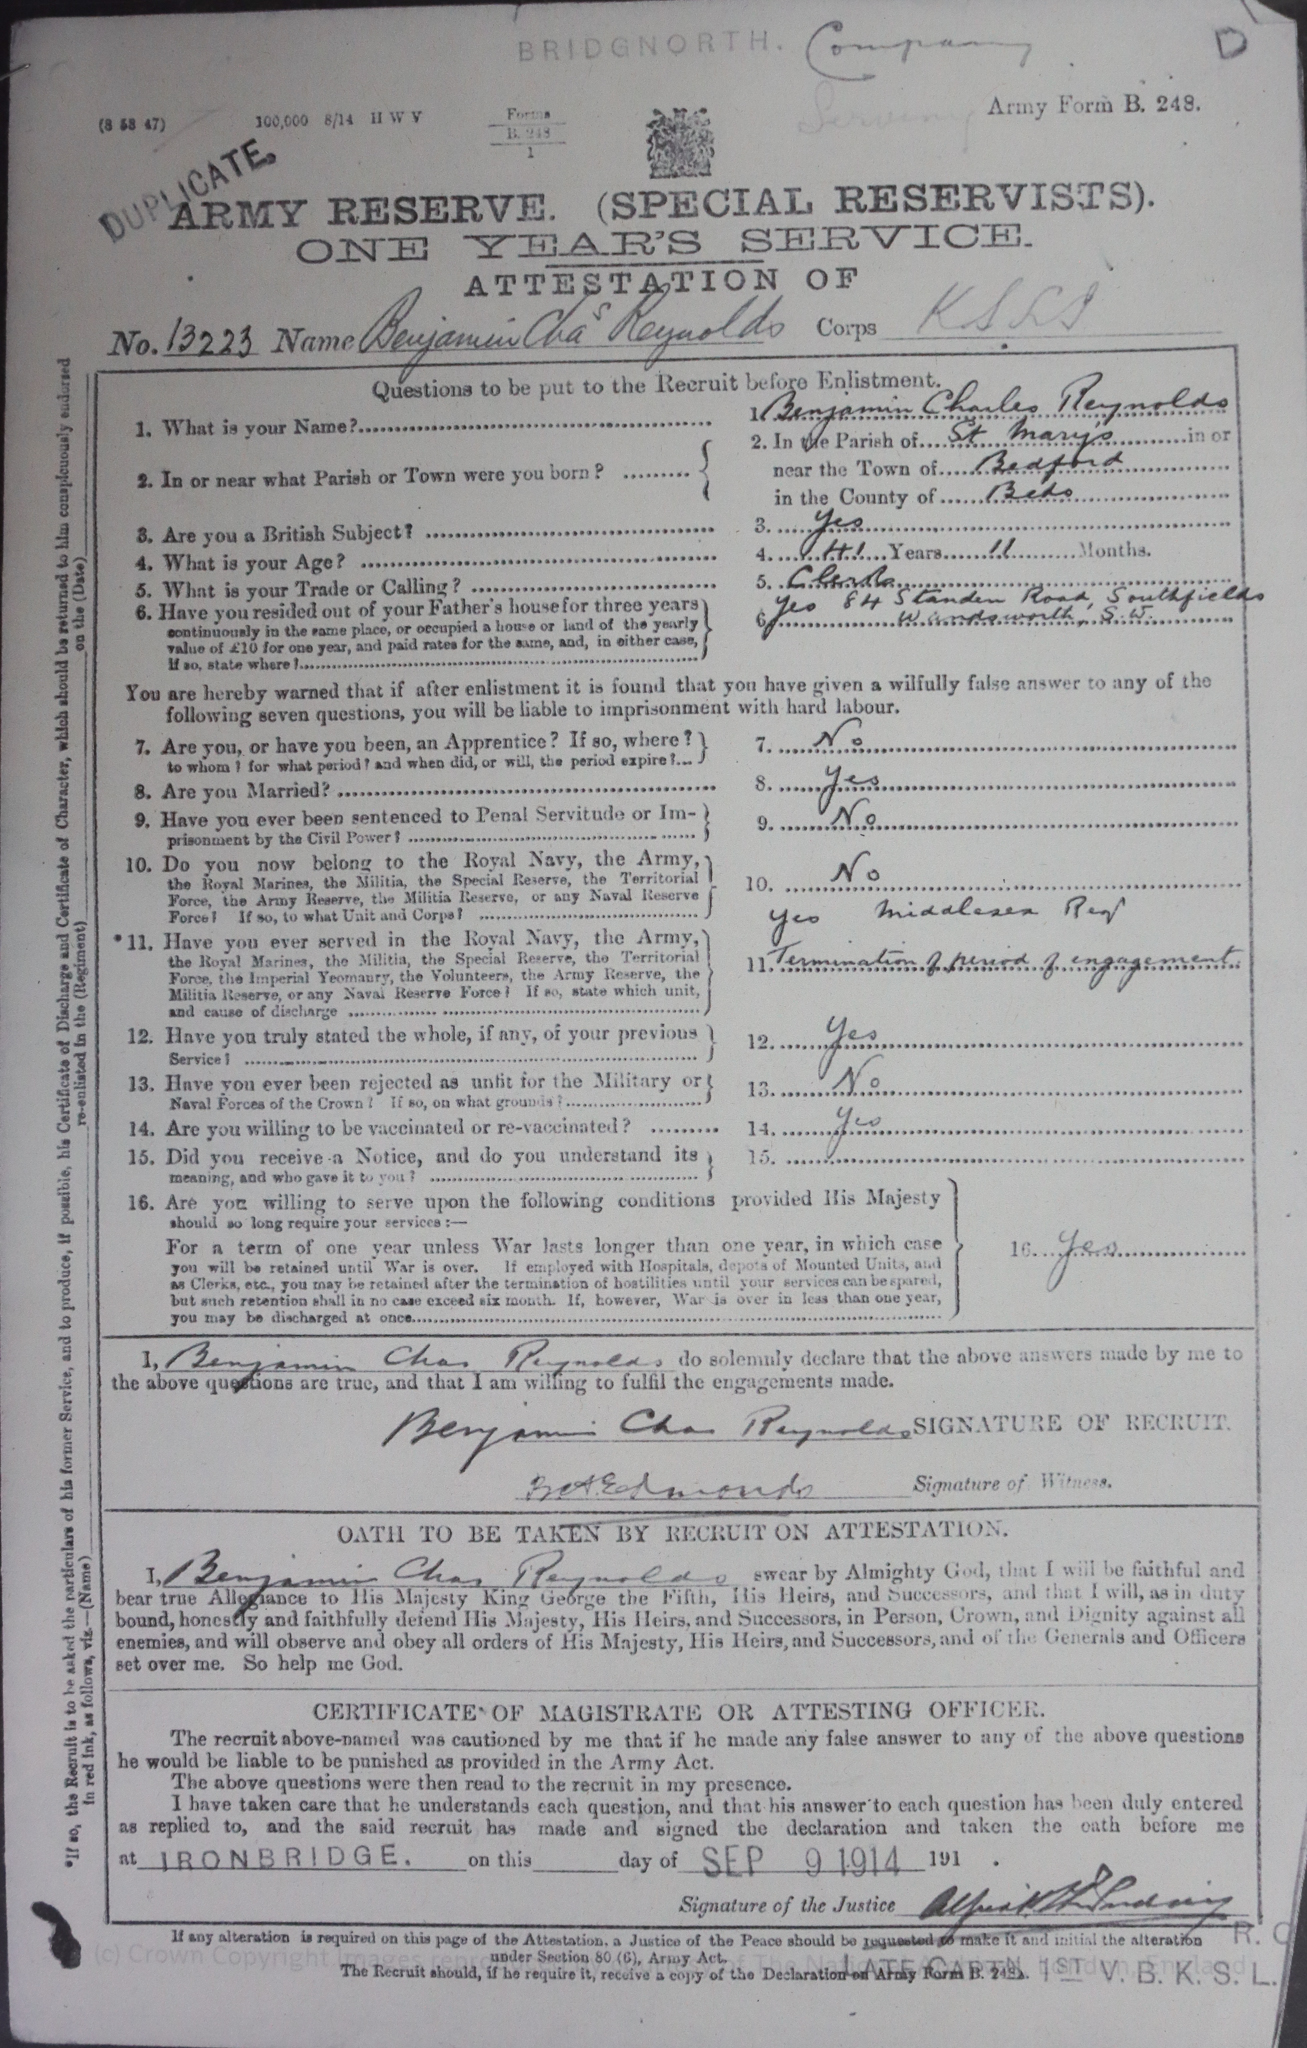 BRIDGNORTH. Company D
Serving
(8 53 47) 100,000 8/14 H W V Forms
B. 248
1
Army Form B. 248.
DUPLICATE.
ARMY RESERVE. (SPECIAL RESERVISTS).
ONE YEAR'S SERVICE.
ATTESTATION OF
No. 13223 Name Benjamin Chas Reynolds Corps KSLI
Questions to be put to the Recruit before Enlistment.
1. What is your Name? 1. Benjamin Charles Reynolds
2. In or near what Parish or Town were you born? 2. In the Parish of St Mary's in or
near the Town of Bedford
in the County of Beds
3. Are you a British Subject? 3. Yes
4. What is your Age? 4. 41 Years 11 Months.
5. What is your Trade or Calling? 5. Clerk
6. Have you resided out of your Father's house for three years 6. Yes 84 Standen Road, Southfields
continuously in the same place, or occupied a house or land of the yearly Wandsworth, S.W.
value of £10 for one year, and paid rates for the same, and, in either case,
if so, state where?
You are hereby warned that if after enlistment it is found that you have given a wilfully false answer to any of the
following seven questions, you will be liable to imprisonment with hard labour.
7. Are you, or have you been, an Apprentice? If so, where? 7. No
to whom? for what period? and when did, or will, the period expire?
8. Are you Married? 8. Yes
9. Have you ever been sentenced to Penal Servitude or Im- 9. No
prisonment by the Civil Power?
10. Do you now belong to the Royal Navy, the Army, 10. No
the Royal Marines, the Militia, the Special Reserve, the Territorial
Force, the Army Reserve, the Militia Reserve, or any Naval Reserve
Force? If so, to what Unit and Corps?
Yes Middlesex Regt
*11. Have you ever served in the Royal Navy, the Army, 11. Termination of period of engagement
the Royal Marines, the Militia, the Special Reserve, the Territorial
Force, the Imperial Yeomanry, the Volunteers, the Army Reserve, the
Militia Reserve, or any Naval Reserve Force? If so, state which unit,
and cause of discharge
12. Have you truly stated the whole, if any, of your previous 12. Yes
Service?
13. Have you ever been rejected as unfit for the Military or 13. No
Naval Forces of the Crown? If so, on what grounds?
14. Are you willing to be vaccinated or re-vaccinated? 14. Yes
15. Did you receive a Notice, and do you understand its 15.
meaning, and who gave it to you?
16. Are you willing to serve upon the following conditions provided His Majesty
should so long require your services:—
For a term of one year unless War lasts longer than one year, in which case 16. Yes
you will be retained until War is over. If employed with Hospitals, depots of Mounted Units, and
as Clerks, etc., you may be retained after the termination of hostilities until your services can be spared,
but such retention shall in no case exceed six month. If, however, War is over in less than one year,
you may be discharged at once
I, Benjamin Chas Reynolds do solemnly declare that the above answers made by me to
the above questions are true, and that I am willing to fulfil the engagements made.
Benjamin Chas Reynolds SIGNATURE OF RECRUIT.
Edmonds Signature of Witness.
OATH TO BE TAKEN BY RECRUIT ON ATTESTATION.
I, Benjamin Chas Reynolds swear by Almighty God, that I will be faithful and
bear true Allegiance to His Majesty King George the Fifth, His Heirs, and Successors, and that I will, as in duty
bound, honestly and faithfully defend His Majesty, His Heirs, and Successors, in Person, Crown, and Dignity against all
enemies, and will observe and obey all orders of His Majesty, His Heirs, and Successors, and of the Generals and Officers
set over me. So help me God.
CERTIFICATE OF MAGISTRATE OR ATTESTING OFFICER.
The recruit above-named was cautioned by me that if he made any false answer to any of the above questions
he would be liable to be punished as provided in the Army Act.
The above questions were then read to the recruit in my presence.
I have taken care that he understands each question, and that his answer to each question has been duly entered
as replied to, and the said recruit has made and signed the declaration and taken the oath before me
at IRONBRIDGE. on this day of SEP 9 1914 191 .
Signature of the Justice
If any alteration is required on this page of the Attestation, a Justice of the Peace should be requested to make it and initial the alteration
under Section 80 (6), Army Act.
The Recruit should, if he require it, receive a copy of the Declaration on Army Form B. 248A.
R. O
LATE CAPTN 1ST V. B. K. S. L.
(c) Crown Copyright Images England
*If so, the Recruit is to be asked the particulars of his former Service, and to produce, if possible, his Certificate of Discharge and Certificate of Character, which should be returned to him conspicuously endorsed
in red ink, as follows, viz.—(Name) re-enlisted in the (Regiment) on the (Date)